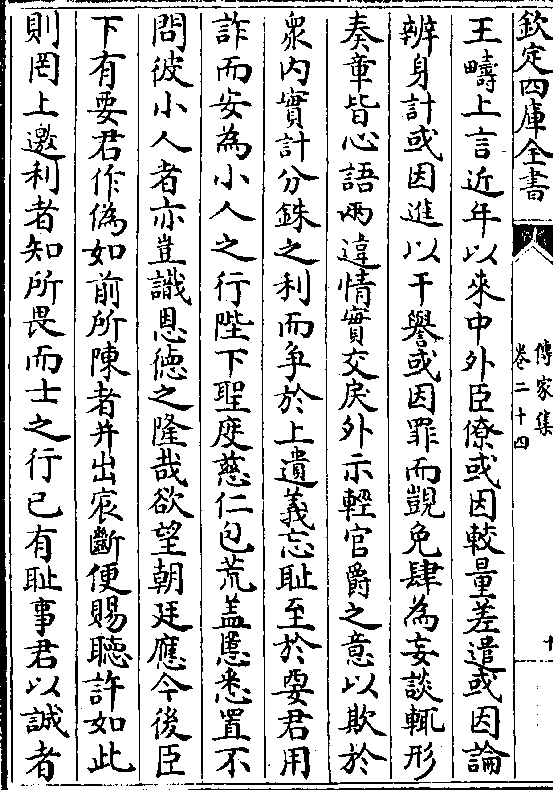 欽定四庫全書
傳家集
卷二十四
十
王疇上言近年以來中外臣僚或因較量差遣或因論
辨身計或因進以干譽或因罪而覬免肆為妄談輒形
奏章皆心語兩違情實交戾外示輕官爵之意以欺於
衆内實計分銖之利而爭於上遺義忘耻至於要君用
詐而安為小人之行陛下聖度慈仁包荒盖慝悉置不
問彼小人者亦豈識恩德之隆哉欲望朝廷應今後臣
下有要君作偽如前所陳者并出宸斷便賜聽許如此
則罔上邀利者知所畏而士之行已有耻事君以誠者